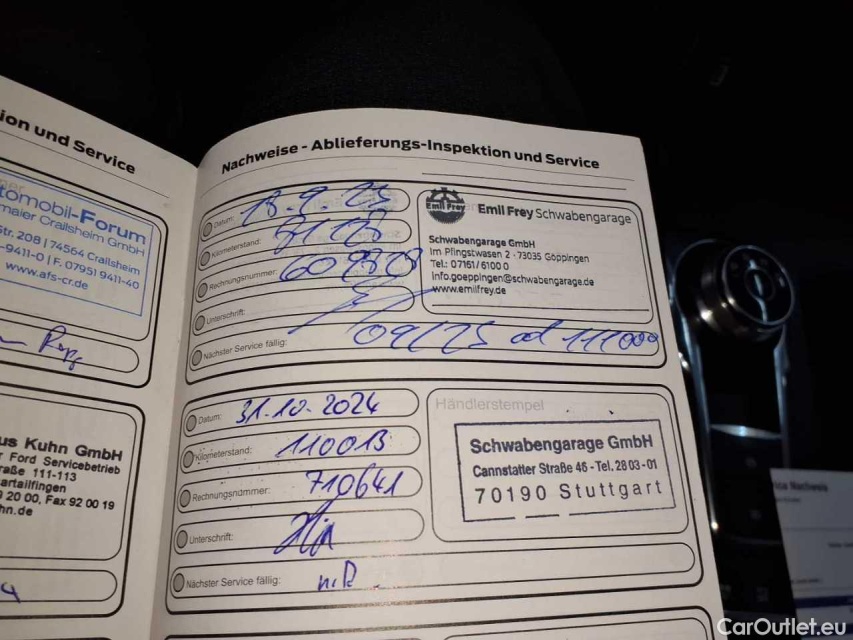 ion und Service
tomobil-Forum
maier Crailsheim GmbH
Str. 208 | 74564 Crailsheim
-9411-0 | F. 07951 9411-40
www.afs-cr.de
us Kuhn GmbH
r Ford Servicebetrieb
raße 111-113
artailfingen
0 20 00, Fax 92 00 19
hn.de
Nachweise - Ablieferungs-Inspektion und Service
Datum:
Kilometerstand:
Rechnungsnummer: 609308
Unterschrift:
Nächster Service fällig: 09/25 od 111000
Emil Frey
Emil Frey Schwabengarage
Schwabengarage GmbH
Im Pfingstwasen 2 · 73035 Göppingen
Tel.: 07161/6100 0
info.goeppingen@schwabengarage.de
www.emilfrey.de
Datum: 31.10.2024
Kilometerstand: 110013
Rechnungsnummer: 710641
Unterschrift:
Nächster Service fällig: n.P.
Händlerstempel
Schwabengarage GmbH
Cannstatter Straße 46 - Tel. 28 03-01
70190 Stuttgart
CarOutlet.eu